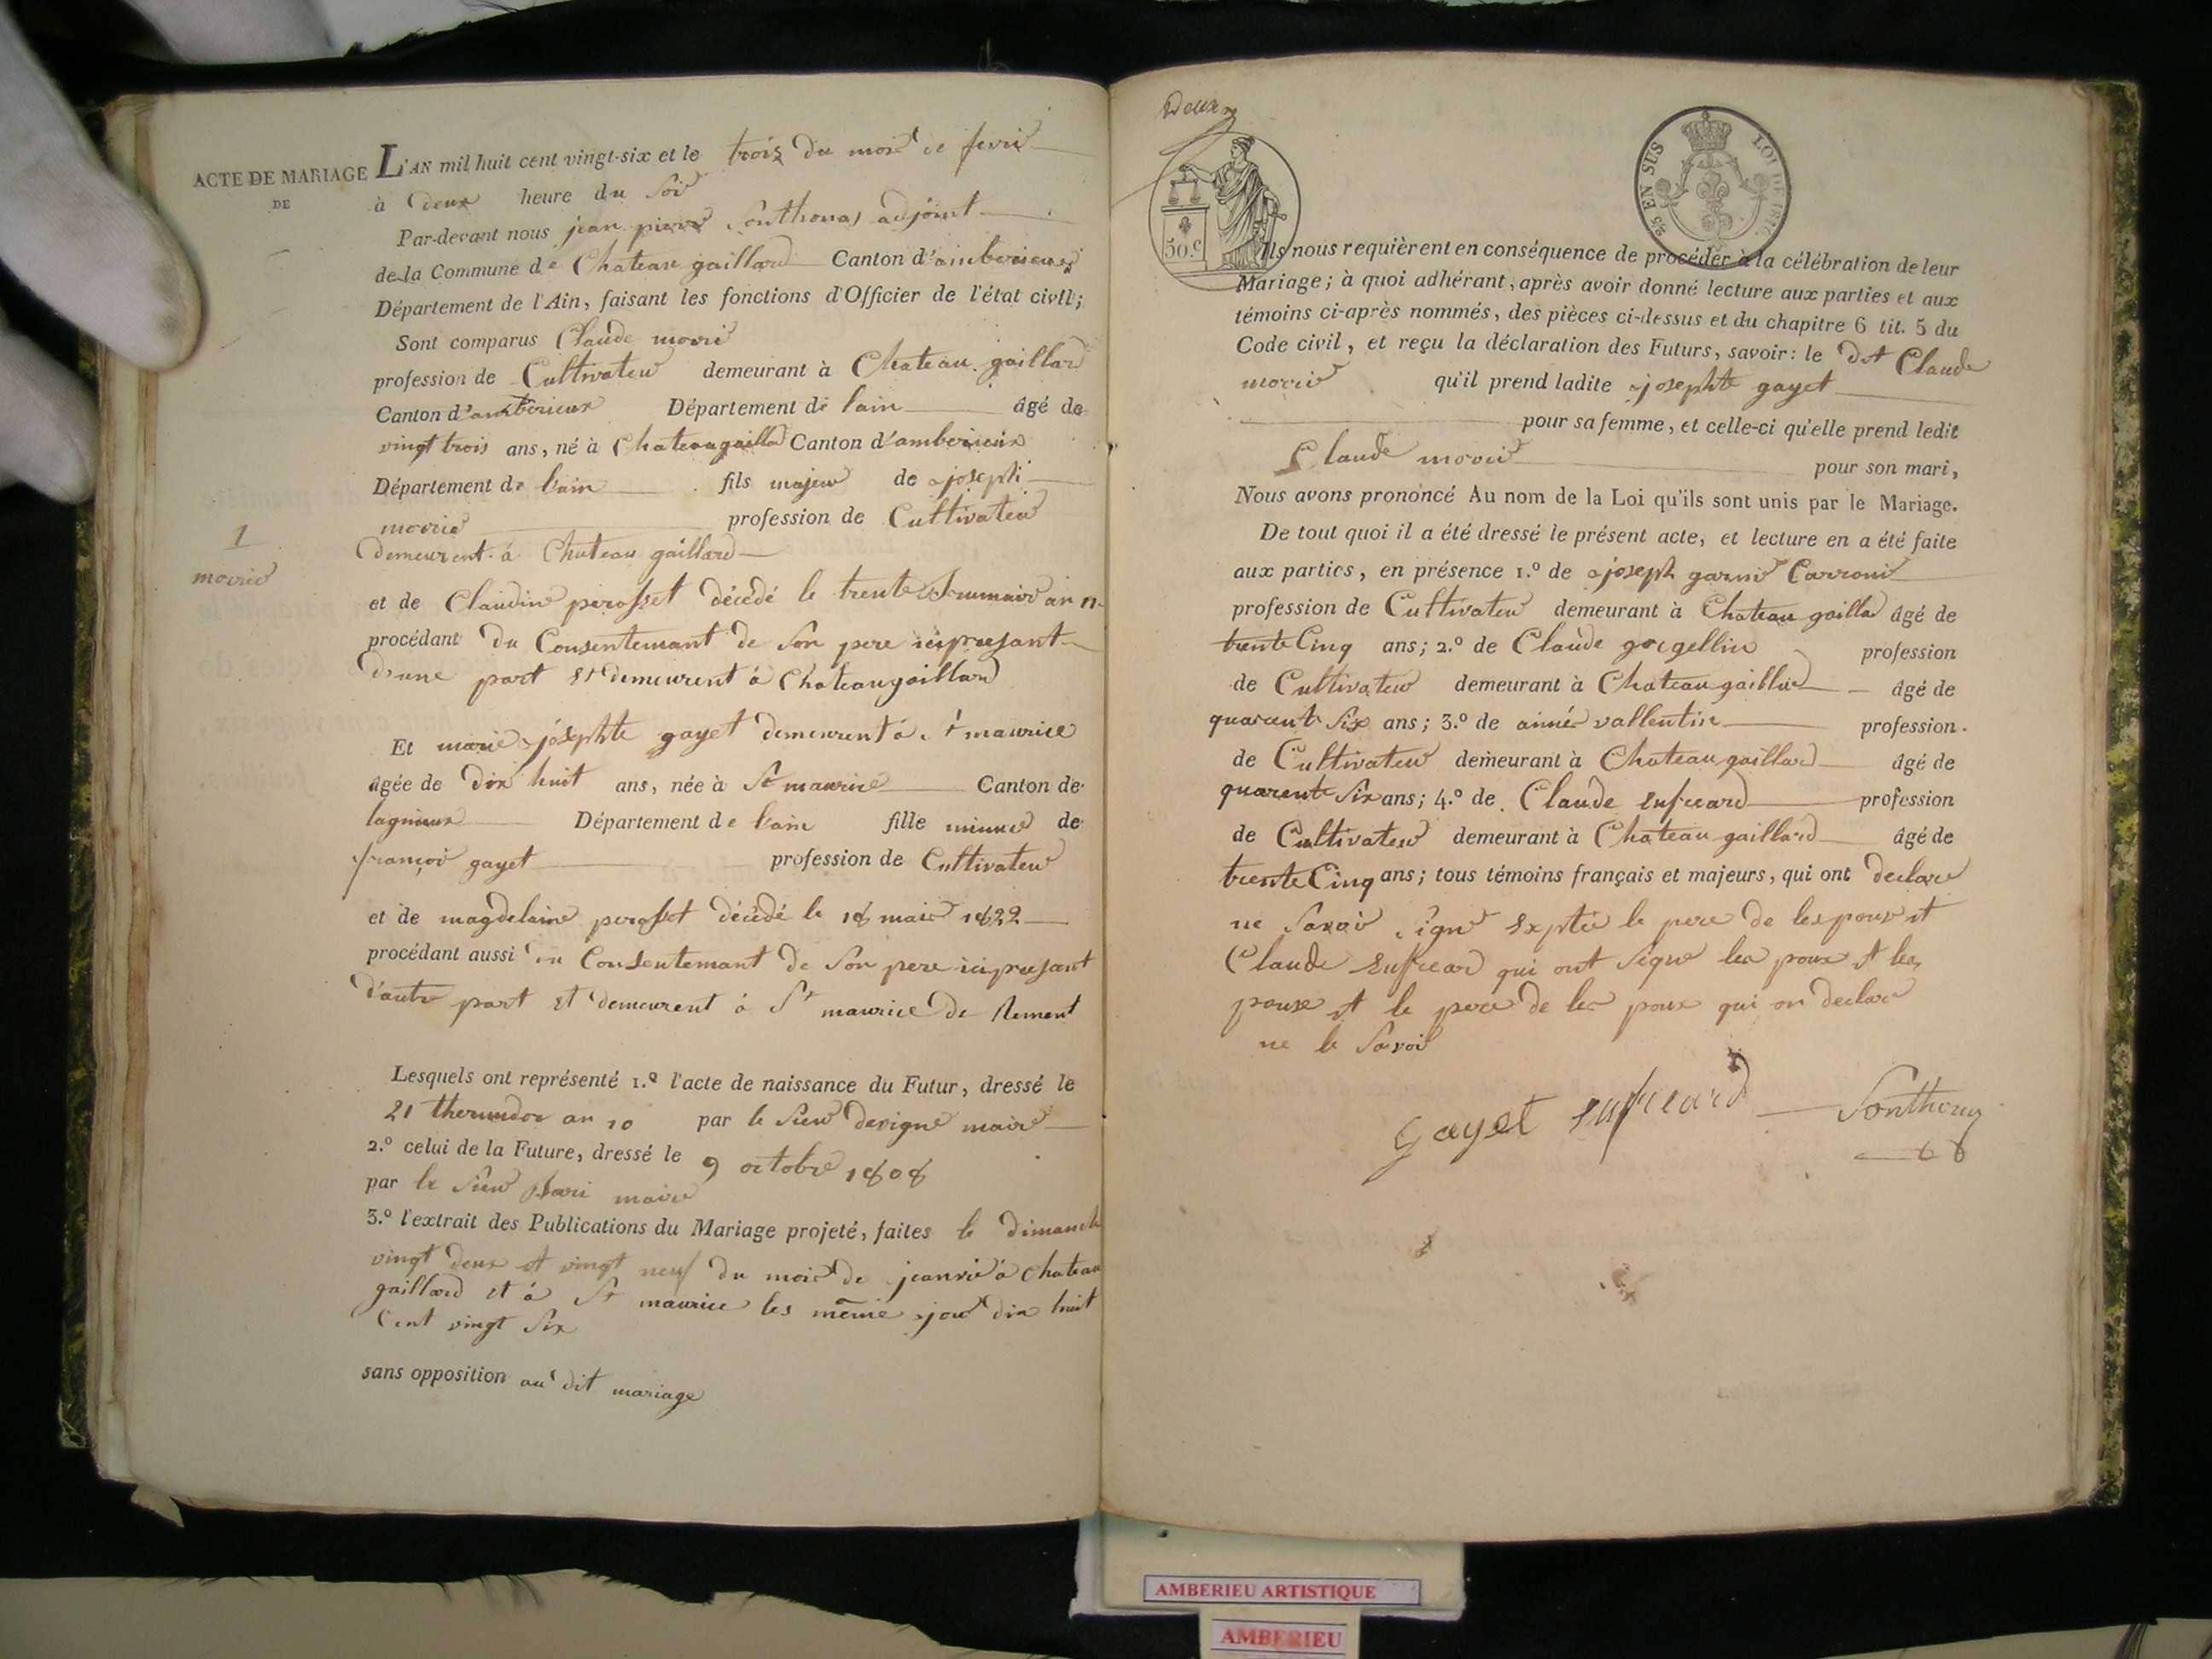 ACTE DE MARIAGE
DE
1
movrié
L'AN mil huit cent vingt-six et le trois du mois de fevrié
à deux heure du soir
Par-devant nous jean pierre Sonthonas adjoint
de la Commune de Chateau gaillard Canton d'amberieux
Département de l'Ain, faisant les fonctions d'Officier de l'état civil;
Sont comparus Claude movrié
profession de Cultivateur demeurant à Chateau gaillard
Canton d'amberieux Département de lain âgé de
vingt trois ans, né à Chateaugaillad Canton d'amberieux
Département de lain fils majeur de joseph
movrié profession de Cultivateur
demeurent à Chateau gaillard
et de Claudine perosset décédé le trente an 11
procédant du Consentemant de Son pere ici present
d'une part et demeurent à Chateaugaillard
Et marie josephte gayet demeurent à St maurice
âgée de dix huit ans, née à St maurice Canton de
lagnieux Département de lain fille mineure de
françoi gayet profession de Cultivateur
et de magdelaine perosset décédé le 18 mars 1822
procédant aussi du Consentemant de Son pere ici present
d'autre part et demeurent à St maurice de Rement
Lesquels ont représenté 1.º l'acte de naissance du Futur, dressé le
21 thermidor an 10 par le Sieur derigne maire
2.º celui de la Future, dressé le 9 octobre 1808
par le Sieur maire
3.º l'extrait des Publications du Mariage projeté, faites le dimanche
vingt deux et vingt neuf du mois de jeanvié à chateau
gaillard et à St maurice les même jour dix huit
Cent vingt Six
sans opposition au dit mariage
Deux
50.c
25 EN SUS
LOI DE
Ils nous requièrent en conséquence de procéder à la célébration de leur
Mariage; à quoi adhérant, après avoir donné lecture aux parties et aux
témoins ci-après nommés, des pièces ci-dessus et du chapitre 6 tit. 5 du
Code civil, et reçu la déclaration des Futurs, savoir: le dit Claude
movrié qu'il prend ladite josephte gayet
pour sa femme, et celle-ci qu'elle prend ledit
Claude movrié pour son mari,
Nous avons prononcé Au nom de la Loi qu'ils sont unis par le Mariage.
De tout quoi il a été dressé le présent acte, et lecture en a été faite
aux parties, en présence 1.º de joseph garnié Carroné
profession de Cultivateur demeurant à Chateau gaillad âgé de
trente Cinq ans; 2.º de Claude gorgellin profession
de Cultivateur demeurant à Chateaugaillard âgé de
quarente Six ans; 3.º de aimé vallentin profession
de Cultivateur demeurant à Chateaugaillard âgé de
quarente Six ans; 4.º de Claude Enfreard profession
de Cultivateur demeurant à Chateaugaillard âgé de
trente Cinq ans; tous témoins français et majeurs, qui ont declare
ne Savoir Signé Exptée le pere de lespouse et
Claude Enfreard qui ont Signe les poux et les
pouse et le pere de les poux qui on declare
ne le Savoir
Gayet Enfreard Sonthonas
AMBERIEU ARTISTIQUE
AMBERIEU